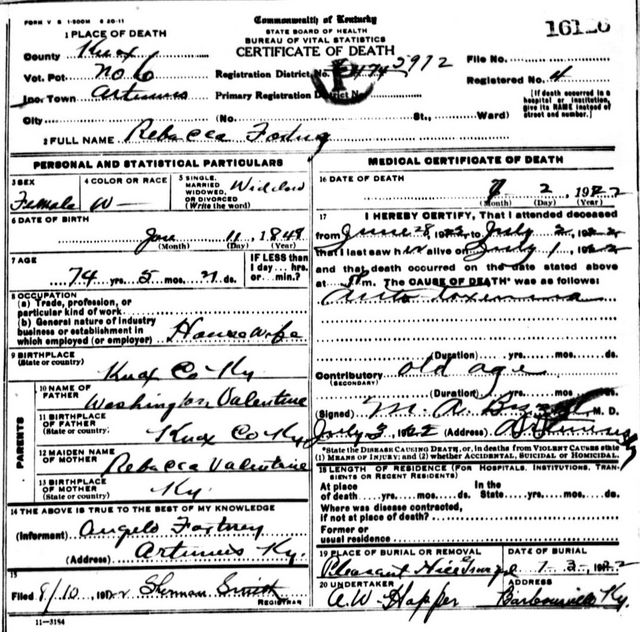 FORM V S 1-500M 6-20-11
Commonwealth of Kentucky
STATE BOARD OF HEALTH
BUREAU OF VITAL STATISTICS
CERTIFICATE OF DEATH
16126
1 PLACE OF DEATH
County Knox
Vot. Pct No 6
Inc. Town Artimus
City (No. St., Ward)
Registration District No. 5972
Primary Registration District No.
File No.
Registered No. 4
[If death occurred in a hospital or institution, give its NAME instead of street and number.]
2 FULL NAME Rebacca Fortney
PERSONAL AND STATISTICAL PARTICULARS
3 SEX Female
4 COLOR OR RACE W
5 SINGLE, MARRIED, WIDOWED, OR DIVORCED (Write the word) Widow
6 DATE OF BIRTH
Jan 11, 1848
(Month) (Day) (Year)
7 AGE
74 yrs. 5 mos. ds.
IF LESS than 1 day... hrs. or min.?
8 OCCUPATION
(a) Trade, profession, or particular kind of work
(b) General nature of industry business or establishment in which employed (or employer) Housewife
9 BIRTHPLACE
(State or country)
Knox Co Ky
PARENTS
10 NAME OF FATHER Washington Valentine
11 BIRTHPLACE OF FATHER (State or country) Knox Co Ky
12 MAIDEN NAME OF MOTHER Rebacca Valentine
13 BIRTHPLACE OF MOTHER (State or country) Ky.
14 THE ABOVE IS TRUE TO THE BEST OF MY KNOWLEDGE
(Informant) Angelo Fortney
(Address) Artimus Ky.
15
Filed 8/10, 192 Sherman Smith
REGISTRAR
11-3184
MEDICAL CERTIFICATE OF DEATH
16 DATE OF DEATH
7 2 1922
(Month) (Day) (Year)
17 I HEREBY CERTIFY, That I attended deceased
from June 28, 1922 to July 2, 1922
that I last saw her alive on July 1, 1922
and that death occurred on the date stated above
at m. The CAUSE OF DEATH* was as follows:
Auto toxemia
(Duration) yrs. mos. ds.
Contributory old age
(SECONDARY)
(Duration) yrs. mos. ds.
(Signed) M. A. M. D.
July 3, 1922 (Address)
*State the DISEASE CAUSING DEATH, or, in deaths from VIOLENT CAUSES state (1) MEANS OF INJURY; and (2) whether ACCIDENTAL, SUICIDAL or HOMICIDAL.
18 LENGTH OF RESIDENCE (FOR HOSPITALS, INSTITUTIONS, TRANSIENTS OR RECENT RESIDENTS)
At place of death yrs. mos. ds. In the State yrs. mos. ds.
Where was disease contracted, if not at place of death?
Former or usual residence
19 PLACE OF BURIAL OR REMOVAL
Pleasant Hill
DATE OF BURIAL
20 UNDERTAKER
A. W. Hopper
ADDRESS
Barbourville Ky.